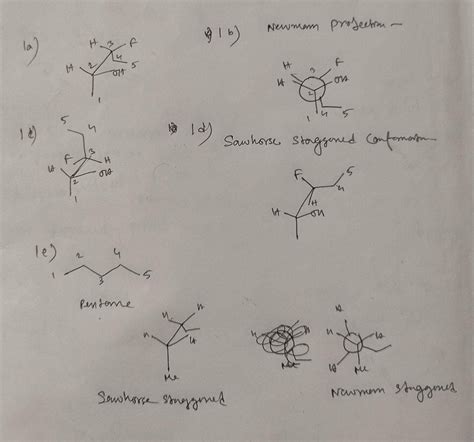 1a)
H 3 F
H 2 4 5
OH
1
1b) Newmam Projection -
H 3 F
H OH
2
1 5
1c)
5
4
F 3 H
H OH
2
1
1d) Sawhorse Staggened Conformation
F 5
4
H
H OH
1
1e)
2 4
1 3 5
Pentane
H H
H H
Me
Sawhorse staggened
H
H H
H
Me Me
Newmam staggened